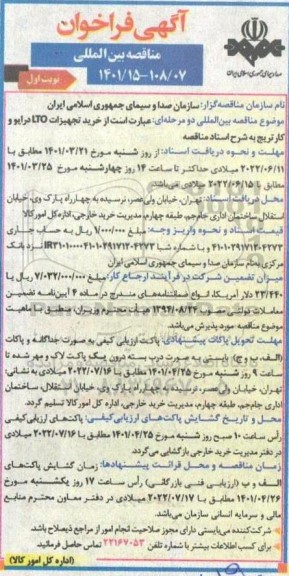 آگهی فراخوان
مناقصه بین المللی
۱۴۰۱/۱۵-۱۰۸/۰۷
نوبت اول
نام سازمان مناقصه‌گزار: سازمان صدا و سیمای جمهوری اسلامی ایران
موضوع مناقصه بین‌المللی دو مرحله‌ای: عبارت است از خرید تجهیزات LTO درایو و
کارتریج به شرح اسناد مناقصه
مهلت و نحوه دریافت اسناد: از روز شنبه مورخ ۱۴۰۱/۰۳/۲۱ مطابق با
۲۰۲۲/۰۶/۱۱ میلادی حداکثر تا ساعت ۱۴ روز چهارشنبه مورخ ۱۴۰۱/۰۳/۲۵
مطابق با ۲۰۲۲/۰۶/۱۵ میلادی می‌باشد.
محل دریافت اسناد: تهران، خیابان ولی‌عصر، نرسیده به چهارراه پارک وی، خیابان
استقلال، ساختمان اداری جام‌جم، طبقه چهارم، مدیریت خرید خارجی، اداره کل امور کالا
قیمت اسناد و نحوه واریز وجه: مبلغ ۱/۰۰۰/۰۰۰ ریال به حساب جاری
نزد بانک
مرکزی بنام سازمان صدا و سیمای جمهوری اسلامی ایران
میزان تضمین شرکت در فرآیند ارجاع کار: مبلغ ۷/۰۳۲/۰۰۰/۰۰۰ ریال یا
۲۳/۴۴۰ دلار آمریکا، انواع ضمانتنامه‌های مندرج در ماده ۴ آیین‌نامه تضمین
معاملات دولتی مصوب ۱۳۹۴/۰۸/۲۴ هیأت محترم وزیران، منطبق با ماهیت
موضوع مناقصه مورد پذیرش می‌باشد.
مهلت تحویل پاکات پیشنهادی: پاکت ارزیابی کیفی به صورت جداگانه و پاکات
(الف، ب و ج) بایستی به صورت درب بسته درون یک پاکت لاک و مهر شده تا
ساعت ۹ روز شنبه مورخ ۱۴۰۱/۰۴/۲۵ مطابق با ۲۰۲۲/۰۷/۱۶ میلادی به نشانی:
تهران، خیابان ولی‌عصر، نرسیده به چهارراه پارک وی، خیابان استقلال، ساختمان
اداری جام‌جم، طبقه چهارم، مدیریت خرید خارجی، اداره کل امور کالا تسلیم گردد.
محل و تاریخ گشایش پاکت‌های ارزیابی‌کیفی: پاکت‌های ارزیابی کیفی
رأس ساعت ۱۰ صبح روز شنبه مورخ ۱۴۰۱/۰۴/۲۵ مطابق با ۲۰۲۲/۰۷/۱۶ میلادی
در دفتر مدیریت خرید خارجی بازگشایی می‌گردد.
زمان مناقصه و محل قرائت پیشنهادها: زمان گشایش پاکت‌های
الف و ب (ارزیابی فنی بازرگانی) رأس ساعت ۱۷ روز یکشنبه مورخ
۱۴۰۱/۰۴/۲۶ مطابق با ۲۰۲۲/۰۷/۱۷ میلادی در دفتر معاون محترم منابع
مالی و سرمایه انسانی سازمان می‌باشد.
شرکت‌کننده می‌بایستی دارای مجوز صلاحیت انجام امور از مراجع ذیصلاح باشد.
برای کسب اطلاعات بیشتر با شماره تلفن ۲۲۱۶۷۰۵۳ تماس حاصل فرمائید.
(اداره کل امور کالا)